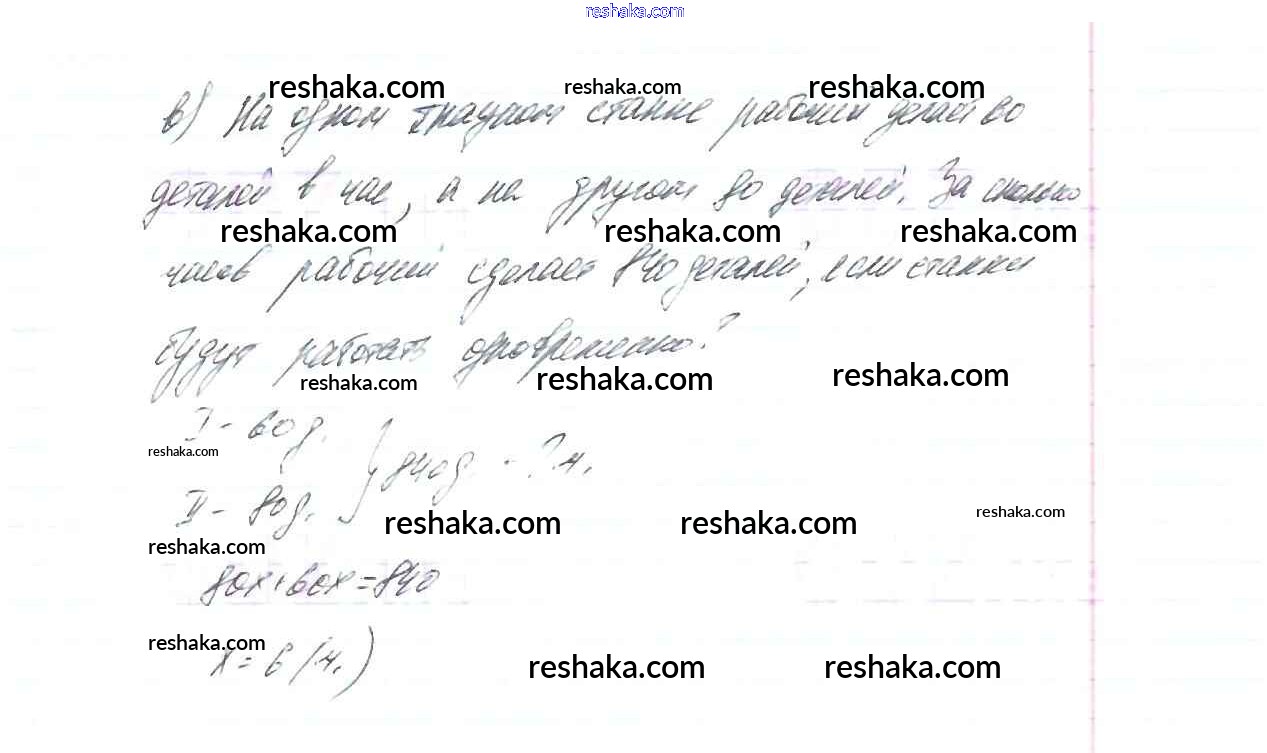 reshaka.com
reshaka.com reshaka.com reshaka.com
в) На одном станке рабочий делает 60
деталей в час, а на другом 80 деталей. За сколько
reshaka.com reshaka.com reshaka.com
часов рабочий сделает 840 деталей, если станки
будут работать одновременно?
reshaka.com reshaka.com reshaka.com
I - 60 д.
reshaka.com
} 840 д. - ? ч.
II - 80 д.
reshaka.com reshaka.com reshaka.com
reshaka.com
80x+60x=840
reshaka.com
x = 6 (ч.)
reshaka.com reshaka.com